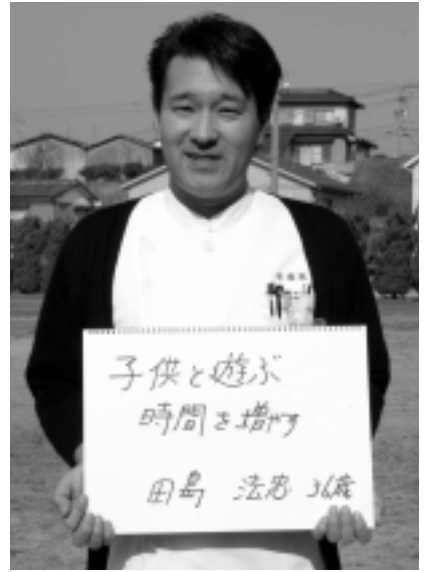 子供と遊ぶ
時間を増やす
田島 法忠 36歳